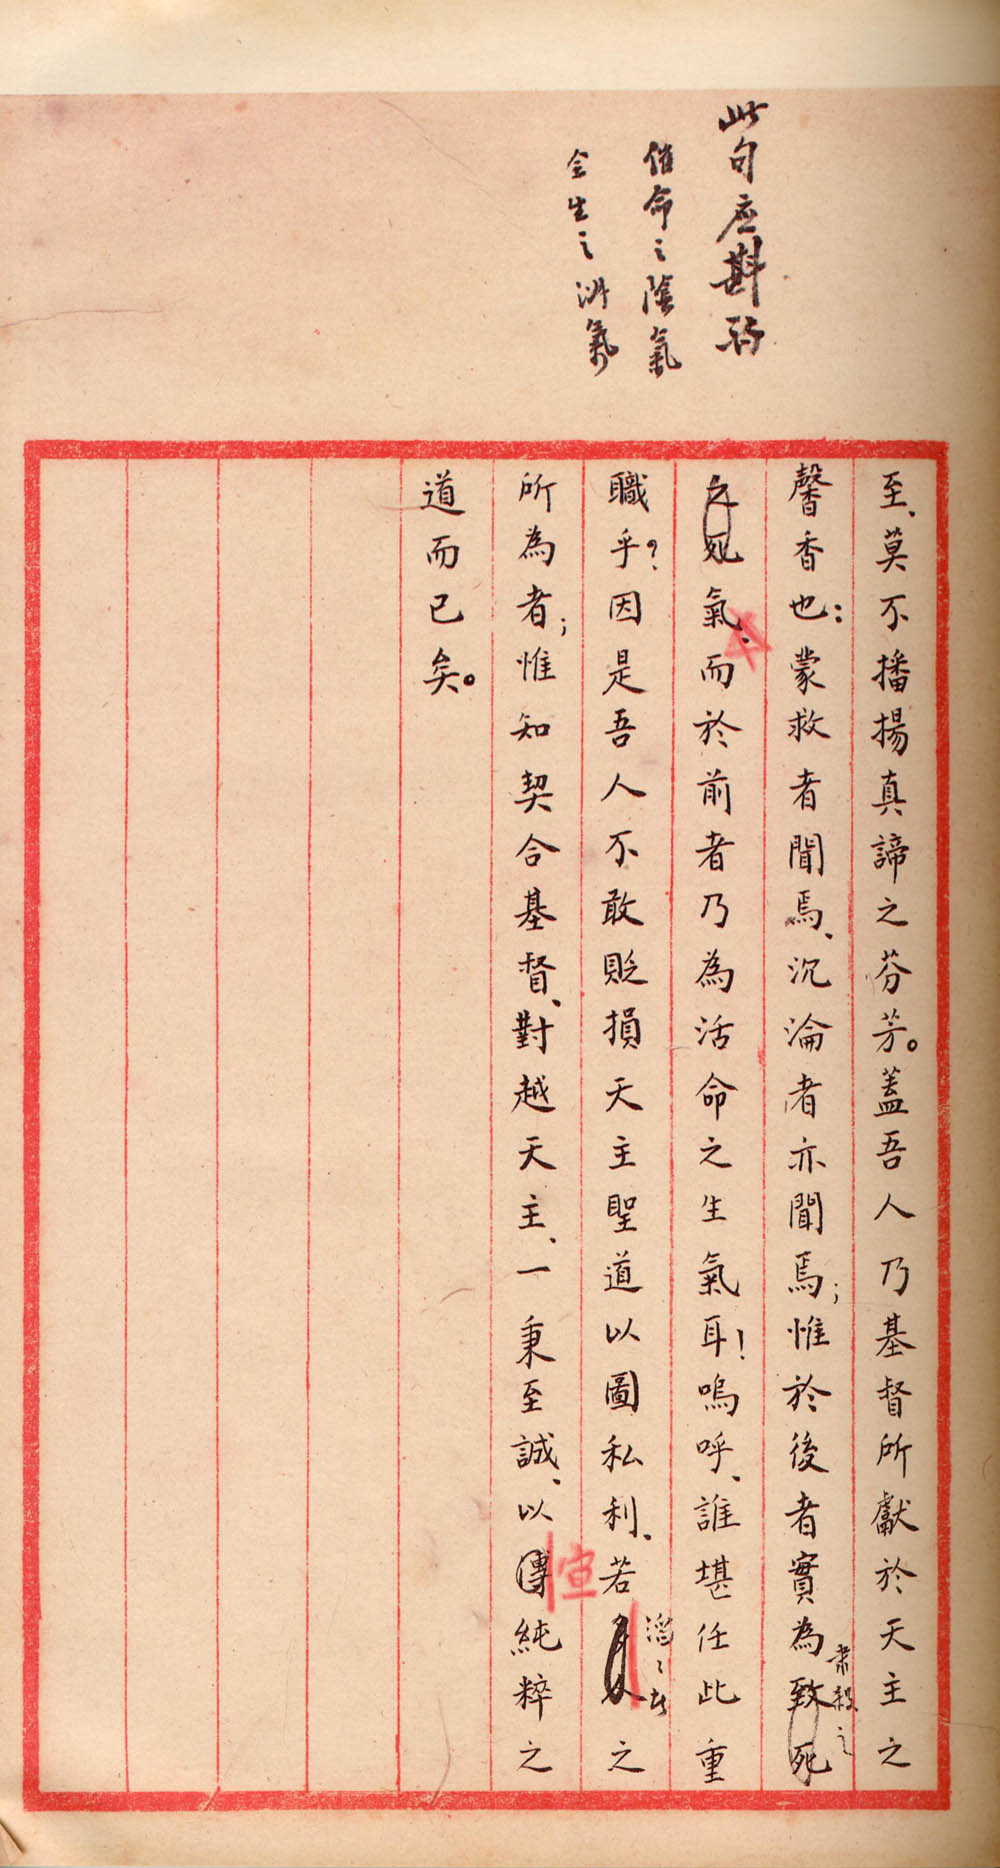 此句应斟酌
催命之陰氣
全生之淑氣
至、莫不播揚真諦之芬芳。蓋吾人乃基督所獻於天主之
馨香也：蒙救者聞焉、沉淪者亦聞焉；惟於後者實為致死
肅殺之
之死氣、而於前者乃為活命之生氣耳！嗚呼、誰堪任此重
職乎？因是吾人不敢貶損天主聖道以圖私利、若之
滔滔者
所為者；惟知契合基督、對越天主、一秉至誠、以傳純粹之
宣
道而已矣。